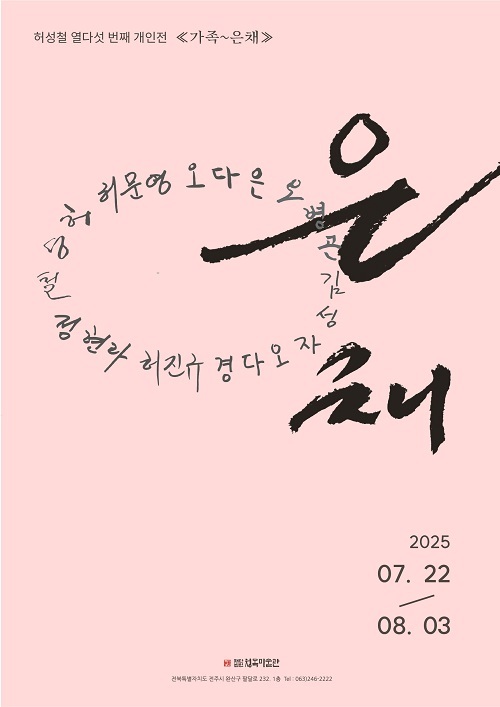 허성철 열다섯 번째 개인전 ≪가족~은채≫
은
채
허성철
허문영
오다은
오병곤
김성자
오다경
허진규
정현라
2025
07. 22
08. 03
청목미술관
전북특별자치도 전주시 완산구 팔달로 232. 1층 Tel : 063)246-2222